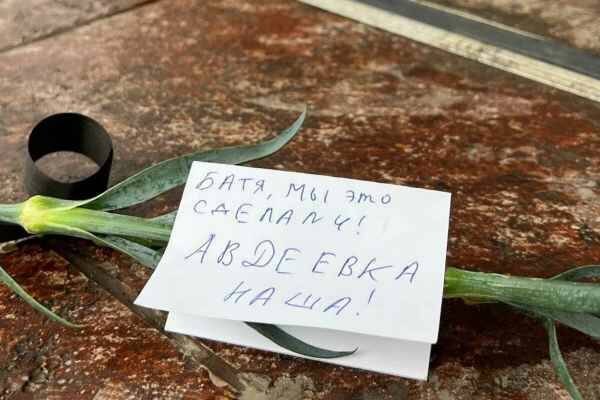 БАТЯ, МЫ ЭТО
СДЕЛАЛИ!
АВДЕЕВКА
НАША!